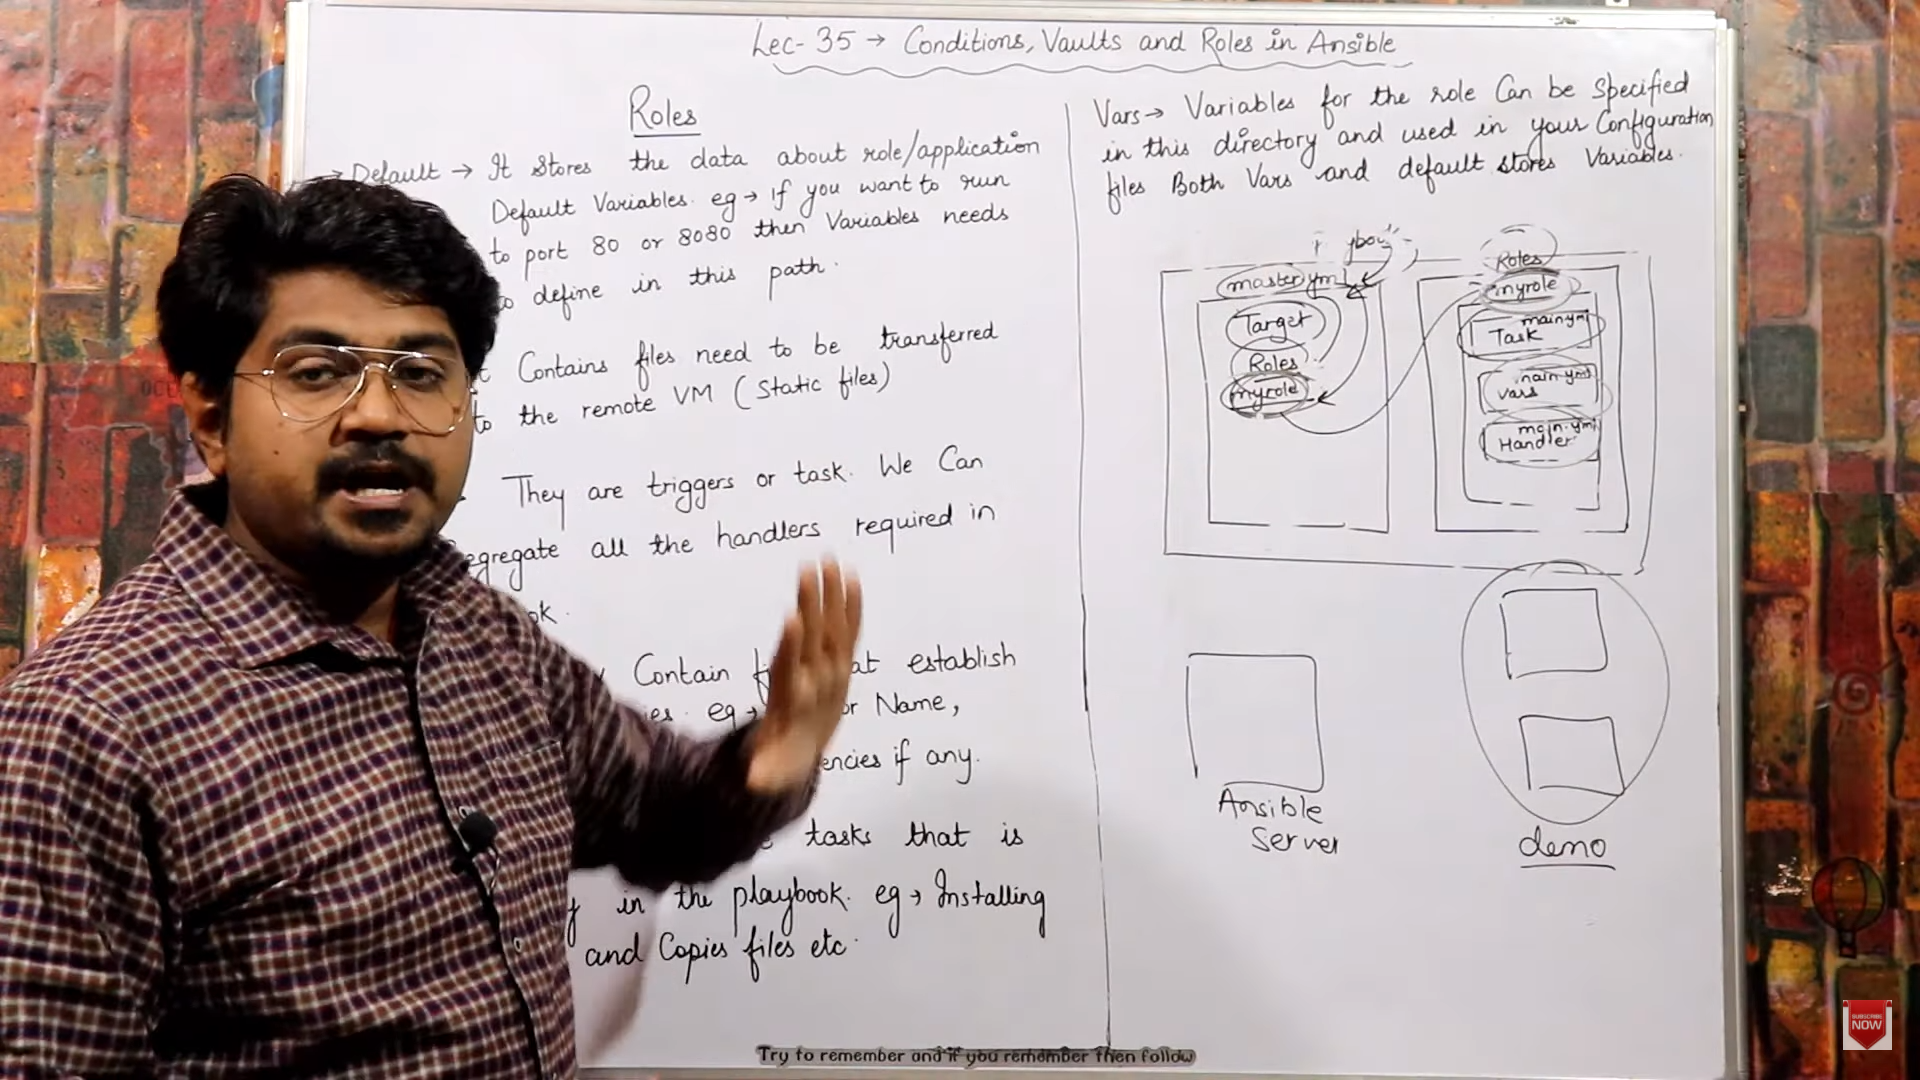 Lec-35 → Conditions, Vaults and Roles in Ansible
Roles
→ Default → It stores the data about role/application
Default Variables. eg → if you want to run
to port 80 or 8080 then Variables needs
to define in this path.
Contains files need to be transferred
to the remote VM (Static files)
They are triggers or task. We Can
segregate all the handlers required in
Contain at establish
eg → or Name,
encies if any.
tasks that is
in the playbook. eg → Installing
and Copies files etc.
Vars → Variables for the role Can be Specified
in this directory and used in your Configuration
files Both Vars and default stores Variables.
master yml
Target
Roles
myrole
Roles
myrole
main.yml
Task
main.yml
vars
main.yml
Handler
Ansible
Server
demo
SUBSCRIBE
NOW
Try to remember and if you remember then follow